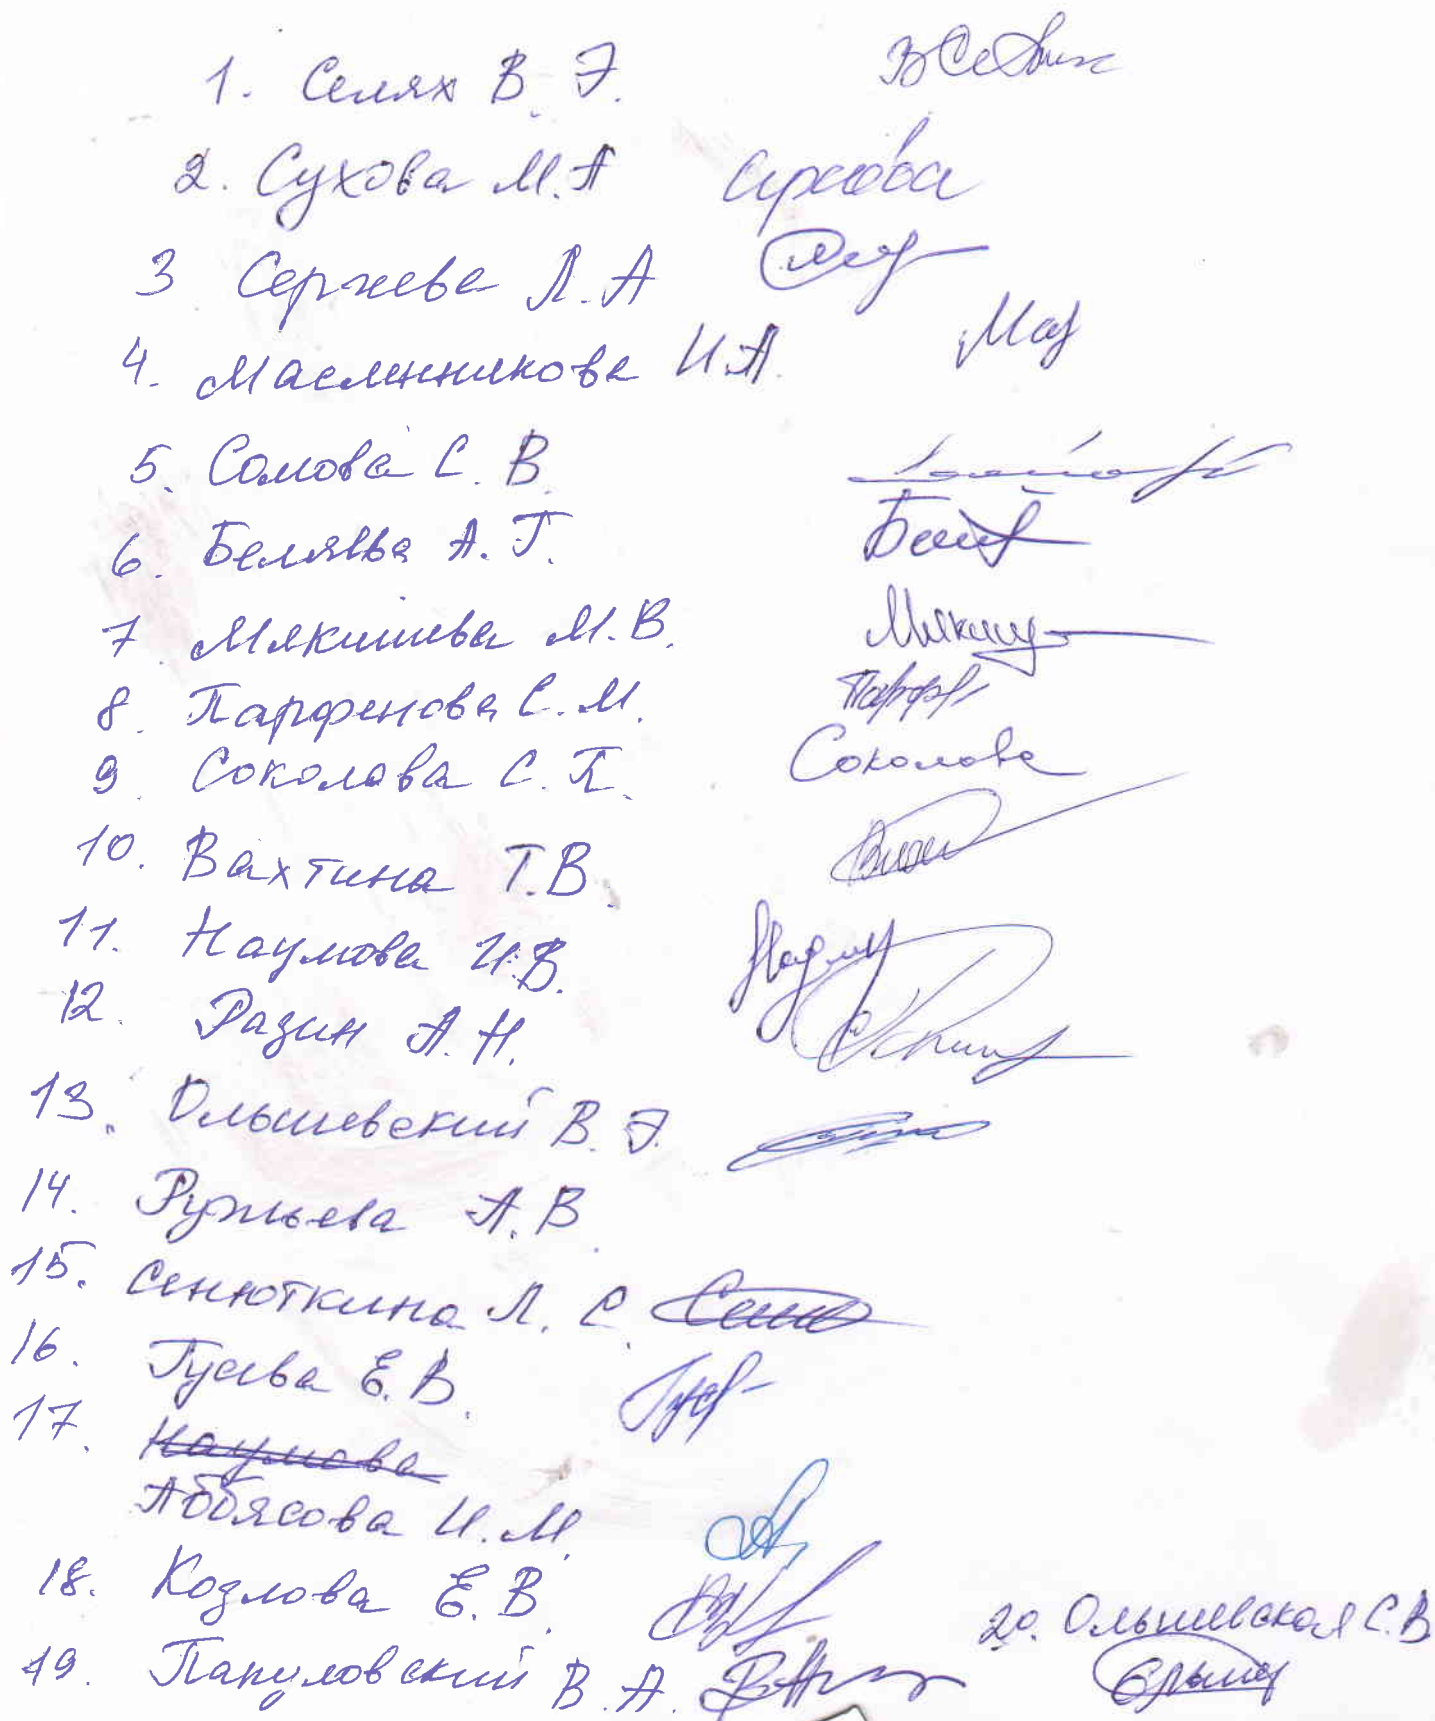 1. Селях В. Э.
2. Сухова М.А Сухова
3 Сергеева Л.А
4. Масленникова И.А.
5. Сомова С. В.
6. Беляева А. Г.
7. Мякишева М.В.
8. Парфенова С.М.
9. Соколова С. П. Соколова
10. Вахтина Т.В.
11. Наумова И.В.
12. Разин А.Н.
13. Ольшевский В. Э.
14. Ружьева А.В.
15. Сенюткина Л. С.
16. Гусева Е.В.
17. Наумова
Аббясова И.М.
18. Козлова Е.В.
19. Папуловский В.А.
20. Ольшевская С.В